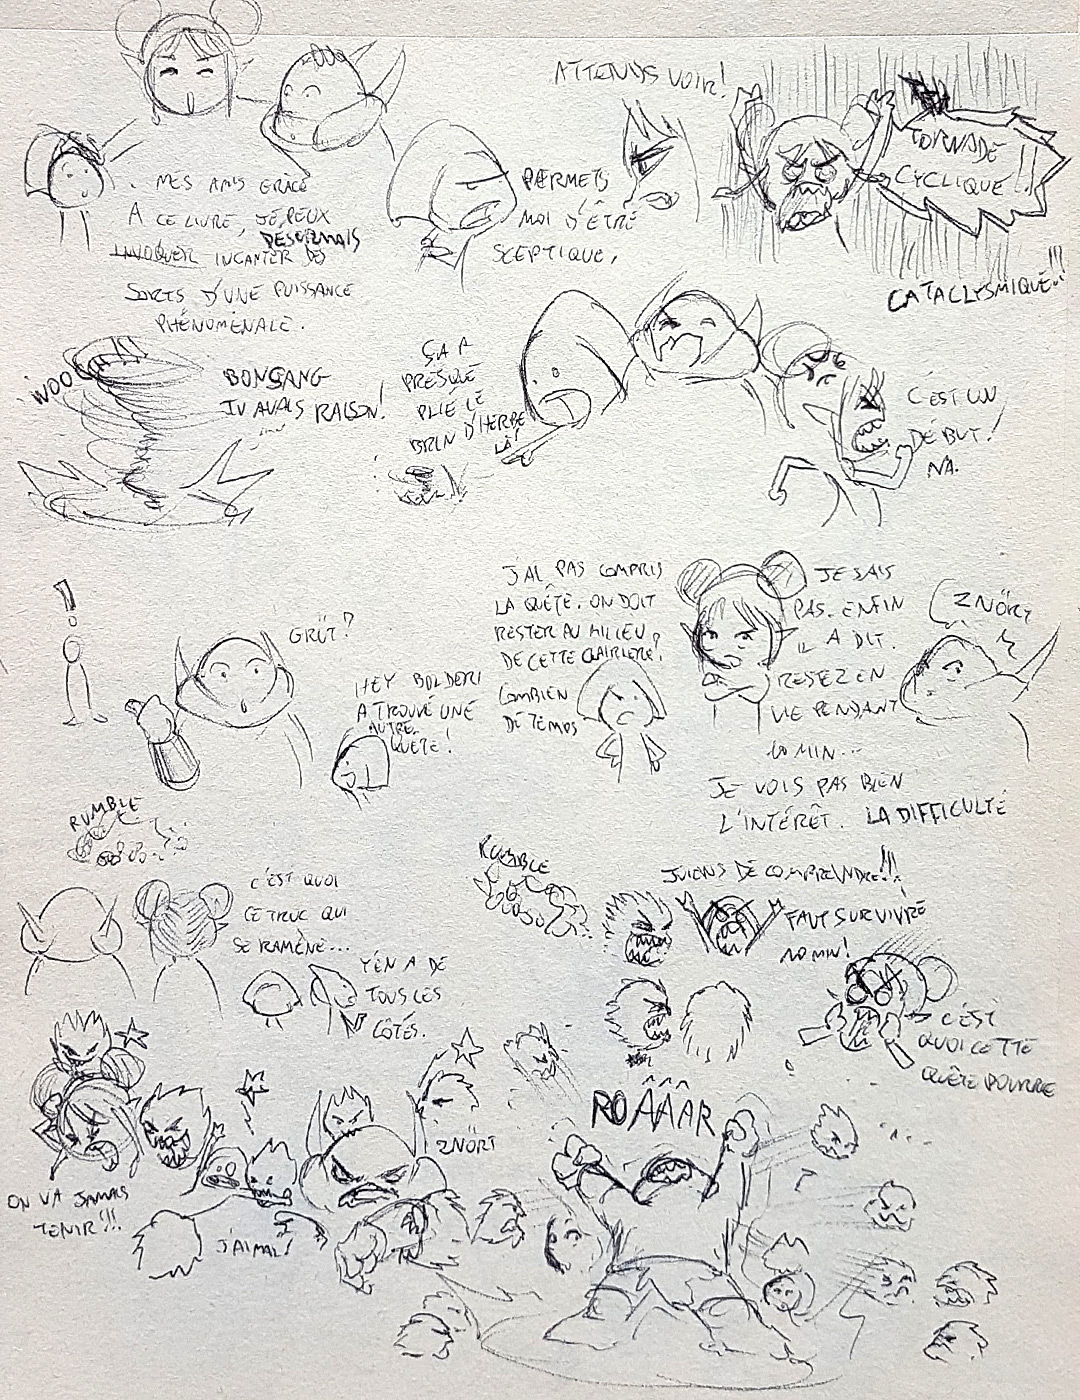 MES AMIS GRÂCE
À CE LIVRE, JE PEUX
DÉSORMAIS
INVOQUER INCANTER DES
SORTS D'UNE PUISSANCE
PHÉNOMÉNALE.
PERMETS
MOI D'ÊTRE
SCEPTIQUE,
ATTENDS VOIR!
TORNADE
CYCLIQUE!
CATACLYSMIQUE!!!
BONSANG
TU AVAIS RAISON!
ÇA A
PRESQUE
PLIÉ LE
BRIN D'HERBE
LÀ!
C'EST UN
DÉBUT!
NA.
!
GRÜT?
HEY BOLDERI
A TROUVÉ UNE
AUTRE
QUÊTE!
J'AI PAS COMPRIS
LA QUÊTE. ON DOIT
RESTER AU MILIEU
DE CETTE CLAIRIÈRE?
COMBIEN
DE TEMPS
JE SAIS
PAS. ENFIN
IL A DIT.
RESTEZ EN
VIE PENDANT
10 MIN...
JE VOIS PAS BIEN
L'INTÉRÊT. LA DIFFICULTÉ
ZNÖRT
RUMBLE
C'EST QUOI
CE TRUC QUI
SE RAMÈNE...
Y'EN A DE
TOUS LES
CÔTÉS.
RUMBLE
DE COMPRENDRE!!!
FAUT SURVIVRE
10 MIN!
C'EST
QUOI CETTE
QUÊTE POURRIE
ON VA JAMAIS
TENIR!!!
J'AI MAL!
ZNÖRT
ROÂÂÂR